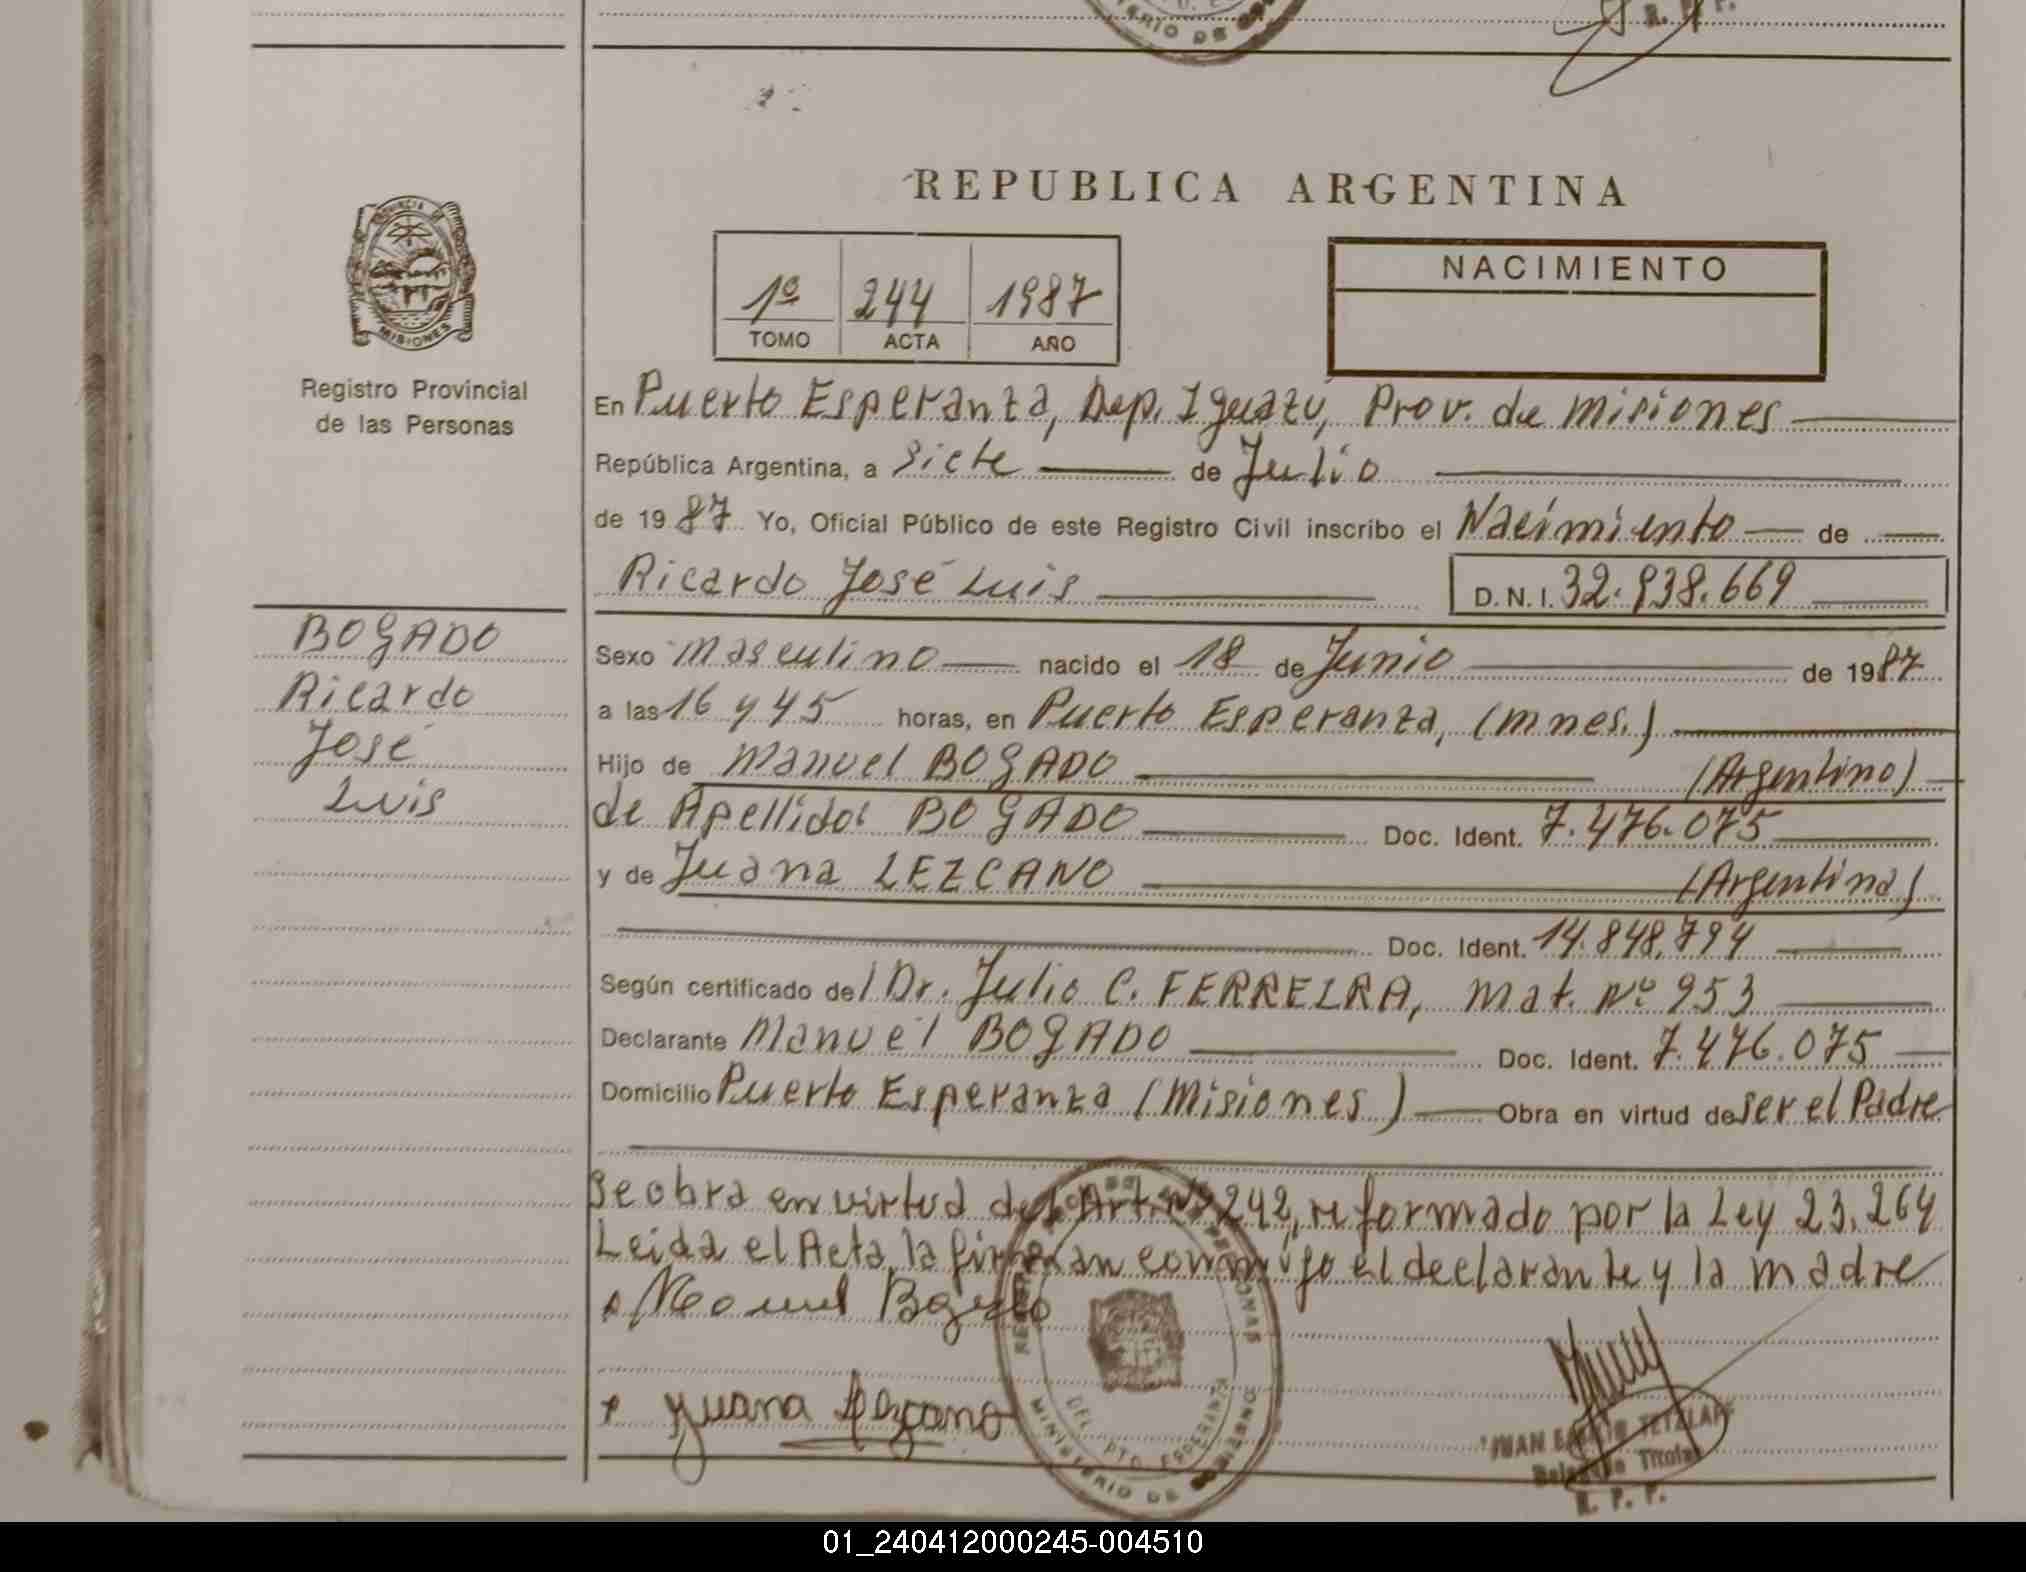 REPUBLICA ARGENTINA
PROVINCIA DE
MISIONES
Registro Provincial
de las Personas
1º 244 1987
TOMO ACTA AÑO
NACIMIENTO
En Puerto Esperanza, Dep. Iguazú, Prov. de Misiones
República Argentina, a Siete de Julio
de 1987 Yo, Oficial Público de este Registro Civil inscribo el Nacimiento de
Ricardo José Luis D.N.I. 32.938.669
BOGADO
Ricardo
José
Luis
Sexo Masculino nacido el 18 de Junio de 1987
a las 16 y 45 horas, en Puerto Esperanza, (Mnes.)
Hijo de Manuel BOGADO (Argentino)
de Apellido: BOGADO Doc. Ident. 7.476.075
y de Juana LEZCANO (Argentina)
Doc. Ident. 14.848.794
Según certificado del Dr. Julio C. FERREIRA, Mat. Nº 953
Declarante Manuel BOGADO Doc. Ident. 7.476.075
Domicilio Puerto Esperanza (Misiones) Obra en virtud de ser el Padre
Se obra en virtud del Art. Nº 242, reformado por la Ley 23.264
Leida el Acta, la firman conmigo el declarante y la madre
Manuel Bogado
Juana Lezcano
MINISTERIO DE GOBIERNO
DEL PTO ESPERANZA
JUAN TETZLAFF
Delegado Titular
R. P. P.
01_240412000245-004510